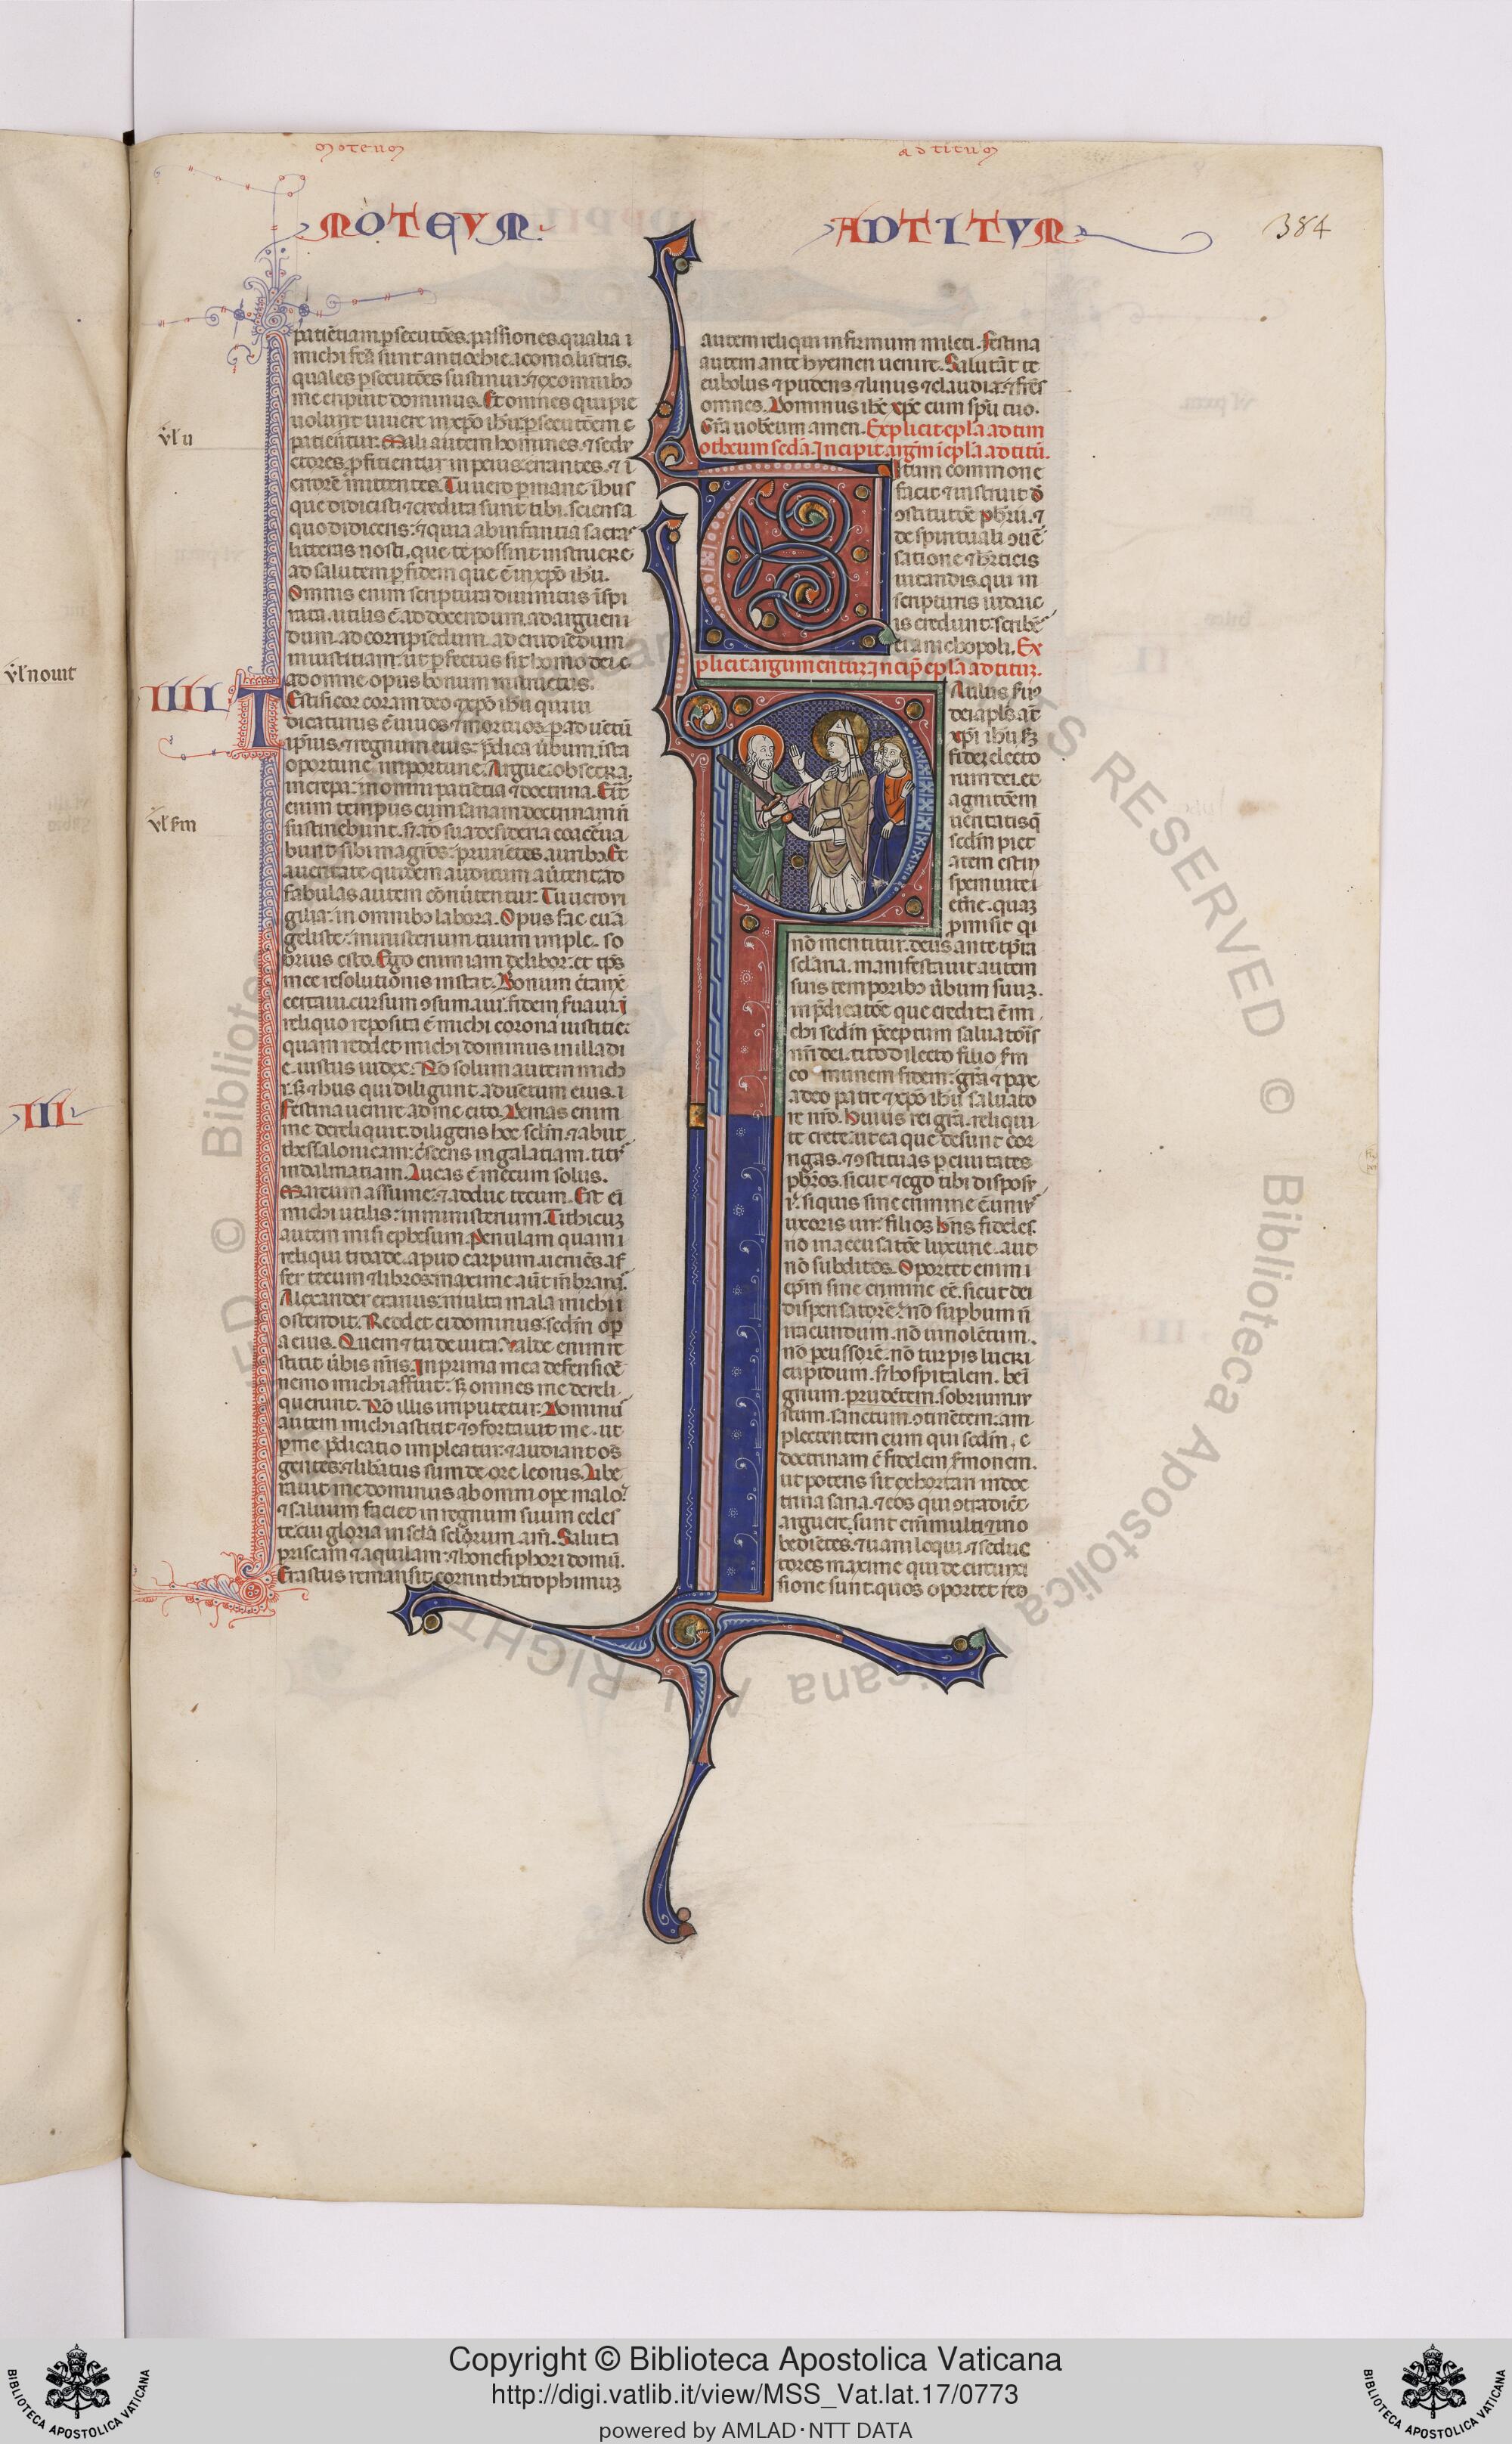 moteum
ad titum
MOTEVM
AD TITVM
384
patiẽtiam psecutões. passiones. qualia i
michi fcã sunt antiochie. iconio. listris.
quales psecutões sustinui: ⁊ ex omnibꝰ
me eripuit dominus. Et omnes qui pie
uolunt uiuere in xp̃o ihũ: psecutõem
patientur. Mali autem homines. ⁊ sedu
ctores. pficient in peius errantes. ⁊ i
errorẽ mittentes. Tu uero pmane ĩ hiis
que didicisti ⁊ credita sunt tibi. sciens a
quo didiceris: ⁊ quia ab infantia sacras
litteras nosti. que te possint instruere
ad salutem p fidem que ẽ in xp̃o ihũ.
Omnis enim scriptura diuinitus ĩspi
rata. utilis ẽ. ad docendum. ad arguen
dum. ad corripiẽdum. ad erudiẽdum
in iustitia: ut pfectus sit homo dei
ad omne opus bonum instructus.
IIII
Testificor coram deo ⁊ xp̃o ihũ qui iu
dicaturus ẽ uiuos ⁊ mortuos. p aduẽtũ
ipsius. ⁊ regnum eius: pdica ũbum. ĩsta
oportune importune. Argue: obsecra.
increpa: in omni patiẽtia ⁊ doctrina. Erit
enim tempus cum sanam doctrinam ñ
sustinebunt. sꝫ ad sua desideria coaceua
bunt sibi magrõs: prurientes auribꝰ. Et
a ueritate quidem auditum auertent. ad
fabulas autem cõuertentur. Tu uero ui
gila: in omnibꝰ labora. Opus fac eua
geliste: ministerium tuum imple. so
brius esto. Ego enim iam delibor: et tp̃s
mee resolutionis instat. Bonum ctamẽ
certaui. cursum ↄsumaui. fidem seruaui. ĩ
reliquo reposita ẽ michi corona iustitie:
quam reddet michi dominus in illa di
e. iustus iudex. Nõ solum autem mich
i. sꝫ ⁊ hiis qui diligunt aduentum eius.
Festina uenire ad me cito. Demas enim
me dereliquit. diligens hoc sclm̃. ⁊ abiit
thessalonicam: crescens in galatiam. titus
in dalmatiam. Lucas ẽ mecum solus.
Marcum assume: ⁊ adduc tecum. Est ei
michi utilis: in ministerium. Tithicuꝫ
autem misi ephesum. Penulam quam i
reliqui troade. apud carpum. ueniẽs af
fer tecum ⁊ libros: maxime aũt mẽbranas.
Alexander erarius: multa mala michi
ostendit. Reddet ei dominus: sedm̃ op
a eius. Quem ⁊ tu deuita: ualde enim re
stitit ũbis nr̃is. In prima mea defensiõe
nemo michi affuit: sꝫ omnes me dereli
querunt. Nõ illis imputetur. Dominus
autem michi astitit ⁊ ↄfortauit me. ut
p me pdicatio impleatur: ⁊ audiant oẽs
gentes. ⁊ libãtus sum de ore leonis. Libe
rauit me dominus ab omni ope malo:
⁊ saluum faciet in regnum suum celes
te. cui gloria in scla sclorum. am̃. Saluta
priscam ⁊ aquilam: ⁊ honesiphori domũ.
Erastus remansit corinthi: trophimuꝫ
ul u
ul nouit
ul sm
III
autem reliqui infirmum mileti. Festina
autem ante hyemen uenire. Salutãt te
eubolus ⁊ pudens ⁊ linus ⁊ claudia: ⁊ frẽs
omnes. Dominus ihc xpc cum spũ tuo.
Grã uobscum amen. Explicit epla ad tim
otheum scda. Incipit argm̃ i epla ad titũ.
Titum commone
facit ⁊ instruit d
ↄstitutõe pbrii. ⁊
de spirituali ↄuer
satione ⁊ hrẽticis
uitandis. qui in
scripturis iudaic
is credunt: scribẽs
ei a nichopoli. Ex
plicit argumentuꝫ. Incip epla ad tituꝫ.
Paulus suꝰ
dei apls̃ aũt
xp̃i ihũ sꝫ
fidez electo
rum dei. et
agnitõem
ueritatis q̃
sedm̃ piet
atem est in
spem uite
etñe. quaꝫ
pmisit qi
nõ mentitur: deus ante tp̃ra
sclaria. manifestauit autem
suis temporibꝰ ũbum suuꝫ.
in pdicatõe que credita ẽ mi
chi sedm̃ pceptum saluatoris
nr̃i dei: tito dilecto filio sm̃
co munem fidem: grã ⁊ pax
a deo patre ⁊ xp̃o ihũ saluato
re nr̃o. Huius rei grã. reliqui
te crete: ut ea que desunt cor
rigas. ⁊ ↄstituas p ciuitates
pbros. sicut ⁊ ego tibi disposu
i. siquis sine crimine ẽ. unius
uxoris uir: filios hñs fideles.
nõ in accusatõe luxurie. aut
nõ subditos. Oportet enim
epm̃ sine crimine eẽ. sicut dei
dispensatorẽ: nõ supbum ñ
iracundum. nõ uinolẽtum.
nõ pcussorẽ. nõ turpis lucri
cupidum. sꝫ hospitalem. beni
gnum. prudẽtem. sobrium. iu
stum. sanctum. ↄtinẽtem: am
plectentem eum qui sedm̃
doctrinam ẽ fidelem sermonem.
ut potens sit exhortari in doc
trina sana. ⁊ eos qui ↄtradicũt
arguere. sunt em̃ multi ⁊ ino
bediẽtes. ⁊ uaniloqui. ⁊ seduc
tores maxime qui de circunci
sione sunt. quos oportet red
Copyright © Biblioteca Apostolica Vaticana
http://digi.vatlib.it/view/MSS_Vat.lat.17/0773
powered by AMLAD·NTT DATA
BIBLIOTECA APOSTOLICA VATICANA
BIBLIOTECA APOSTOLICA VATICANA